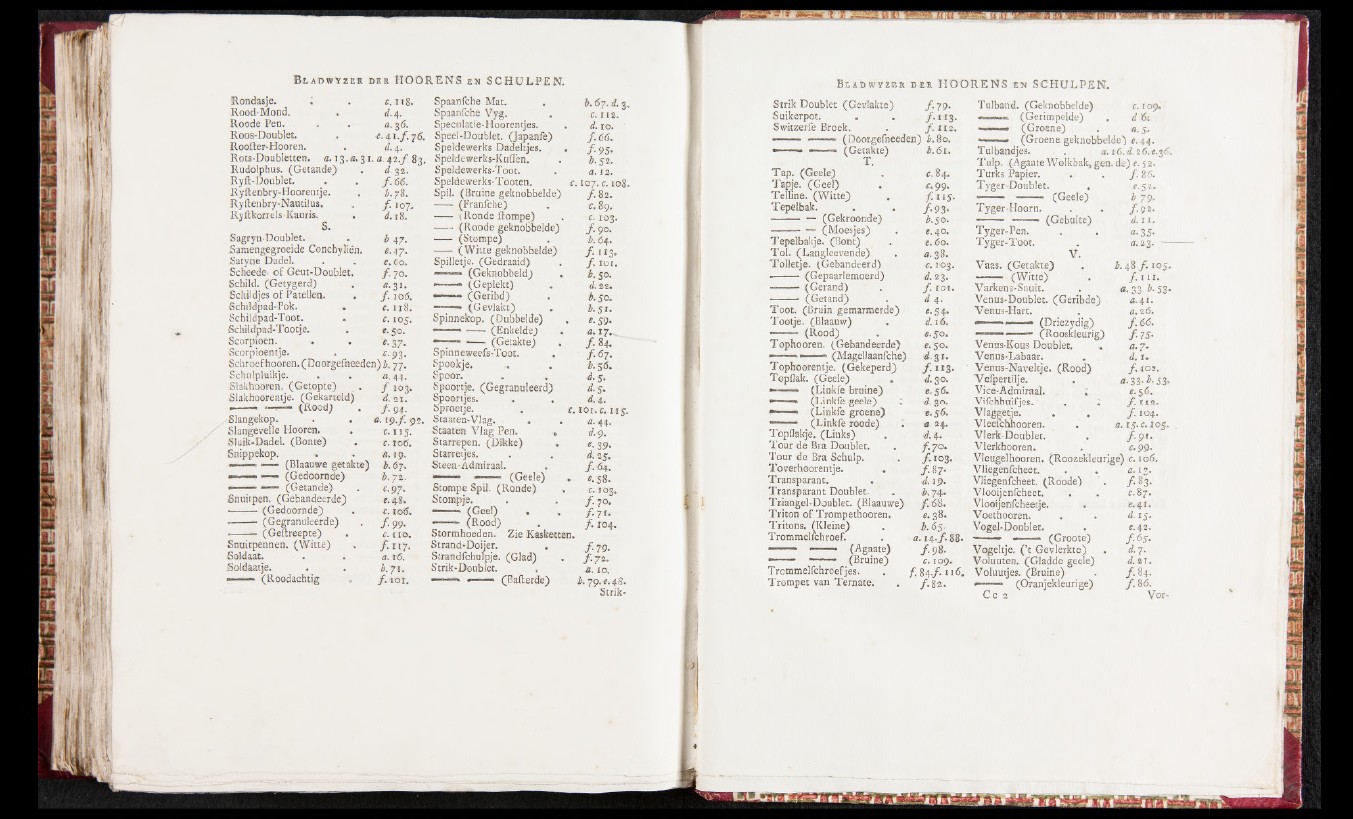 BLADWYZER DER HOORENS EN SCHULPEN.
Rondasje. . . c. 118.
Rood-Mond. . d. 4.
Roode Pen. . . a. 36.
Roos-Doublet. . e. 41. f. 76.
Roofter-Hooren. . d. 4.
Rots-Doubletten. a. 13. a. 31. a. 42. f 83.
Rudolphus. (Getande) . d. 32.
Ryft-Doublet. . . f. 66.
Ryftenbry-Hoorentje. . b. 78.
Ryftenbry-Nautilus. . f. 107.
Ryftkorrels-Kauris. . d. 18.
S.
Sagryn-Doublet. . b 47.
Samengegroeide Conchyliën. e. 47.
Satyne Dadel. . . e. 60.
Scheede of Geut-Doublet. f. 70.
Schild. (Getygerd) . a. 31.
Schildjes of Patellen. . f. 106.
Schildpad-Pok. . c. 118.
Schildpad-Toot. . c. 105.
Schildpad-Tootje. . e. 50.
Scorpioen. . . e. 37.
Scorpioentje. . c. 93.
Schroefhooren. (Doorgefneeden) b. 77.
Schulpluikje. . . a. 44.
Slakhooren. (Getopte) . f 103.
Slakhoorentje. (Gekarteld) d. 21.
—— —— (Rood) . f. 94.
Slangekop. . . a. 19. f. 92.
Slangevelle Hooren. . c. 115.
Sluik-Dadel. (Bonte) . c. 106.
Snippekop. . . a. 19.
—— —— (Blaauwe getakte) b. 67.
—— —— (Gedoornde) b. 72.
—— —— (Getande) . c. 97.
Snuitpen. (Gebandeerde) e. 48.
—— (Gedoornde) . c. 106.
—— (Gegranuleerde) . f. 99.
—— (Geftreepte) . c. 110.
Snuitpennen. (Witte) . f. 117.
Soldaat. . . a. 16.
Soldaatje. . . b. 71.
—— (Roodachtig . f. 101.
Spaanfche Mat. . b. 67. d. 3.
Spaanfche Vyg. . c. 112.
Speculatie-Hoorentjes. . d. 10.
Speel-Doublet. (Japanfe) f. 66.
Speldewerks Dadeltjes. . f. 95.
Speldewerks-Kuffen. . b. 52.
Speldewerks-Toot. . a. 12.
Speldewerks-Tooten. c. 107. c. 108.
Spil. (Bruine geknobbelde) f. 82.
—— (Franfche) . c. 89.
—— (Ronde ftompe) . c. 103.
—— (Ronde geknobbelde) f. 90.
—— (Stompe) . b. 64.
—— (Witte geknobbelde) f. 113.
Spilletje. (Gedraaid) . f. 101.
—— (Geknobbeld) . b. 50.
—— (Geplekt) . d. 22.
—— (Geribd) . b. 50.
—— (Gevlakt) . b. 51.
Spinnekop. (Dubbelde) . e. 59.
—— —— (Enkelde) . a. 17.
—— —— (Getakte) . f. 84.
Spinneweefs-Toot. . f. 67.
Spookje. . . b. 56.
Spoor. . . d. 5.
Spoortje. (Gegranuleerd) d. 5.
Spoortjes. . . d. 4.
Sproetje. . c. 101. c. 115.
Staaten-Vlag. . . a. 44.
Staaten Vlag Pen. . d. 9.
Starrepen. (Dikke) . e. 39.
Starretjes. . . d. 25.
Steen-Admiraal. . f. 64.
—— —— (Geele) . e. 58.
Stompe Spil. (Ronde) . c. 103.
Stompje. . . f. 70.
—— (Geel) . . f. 71.
—— (Rood) . f. 104.
Stormhoeden. Zie Kasketten.
Strand-Doijer. . f. 79.
Strandfchulpje. (Glad) . f. 72.
Strik-Doublet. . a. 10.
—— —— (Bafterde) b. 79. e. 48.
Strik-
BLADWYZER DER HOORENS EN SCHULPEN.
Strik Doublet (Gevlakte) f. 79.
Suikerpot. . . f. 113.
Switzerfe Broek. . f. 112.
—— —— (Doorgefneeden) b. 80.
—— —— (Getakte) b. 61.
T.
Tap. (Geele) . c. 84.
Tapje. (Geel) . c. 99.
Telline. (Witte) . f. 115.
Tepelbak. . . f. 93.
—— — (Gekroonde) b. 50.
—— — (Moesjes) . e. 40.
Tepelbakje. (Bont) . e. 60.
Tol. (Langleevende) . a. 38.
Tolletje. (Gebandeerd) c. 103.
—— (Gepaarlemoerd) d. 23.
—— (Gerand) . f. 101.
—— (Getand) . d 4.
Toot. (Bruin gemarmerde) e. 54.
Tootje. (Blaauw) . d. 16.
—— (Rood) . e. 50.
Tophooren. (Gebandeerde) e. 50.
—— —— (Magellaanfche) d. 31.
Tophoorentje. (Gekeperd) f. 113.
Topflak. (Geele) . d. 30.
—— (Linkfe bruine) e. 56.
—— (Linkfe geele) . d. 30.
—— (Linkfe groene) e. 56.
—— (Linkfe roode) . a 24.
Topflakje. (Links) . d. 4.
Tour de Bra Doublet. . f. 70.
Tour de Bra Schulp. . f. 103.
Toverhoorentje. . f. 87.
Transparant. . d. 19.
Transparant Doublet. . b. 74.
Triangel-Doublet. (Blaauwe) f. 68.
Triton of Trompethooren. e. 38.
Tritons. (Kleine) . b. 65.
Trommelfchroef. . a. 14. f. 88.
—— —— (Agaate) f. 98.
—— —— (Bruine) c. 109.
Trommelfchroefjes. . f. 84. f. 116.
Trompet van Ternate. . f. 82.
Tulband. (Geknobbelde) c. 109.
—— (Gerimpelde) . d 6.
—— (Groene) . a. 5.
—— (Groene geknobbelde) e. 44.
Tulbandjes. . a. 16. d. 26. e. 36.
Tulp. (Agaate Wolkbak, gen. de) e. 52.
Turks Papier. . . f. 86.
Tyger-Doublet. . e. 52.
—— —— (Geele) b 79.
Tyger-Hoorn. . . f. 92.
—— —— (Gebulte) d. 11.
Tyger-Pen. . . a. 35.
Tyger-Toot. . a. 23.
V.
Vaas. (Getakte) . b. 48 f. 105.
—— (Witte) . f. 111.
Varkens-Snuit. . a. 33. b. 53.
Venus-Doublet. (Geribde) a. 41.
Venus-Hart. . a. 26.
—— —— (Driezydig) f. 66.
—— —— (Rooskleurig) f. 75.
Venus-Kous Doublet. . a. 7.
Venus-Labaar. . d. 1.
Venus-Naveltje. (Rood) f. 102.
Vefpertilje. . a. 33. b. 53.
Vice-Admiraal. . e. 56.
Vifchhuifjes. . . f. 112.
Vlaggetje. . . f. 104.
Vleefchhooren. . a. 15. c. 105.
Vlerk-Doublet. . f. 91.
Vlerkhooren. . c. 99.
Vleugelhooren. (Roozekleurige) c. 106.
Vliegenfcheet. . . a. 12.
Vliegenfcheet. (Roode) . f. 83.
Vlooijenfcheet. . . c. 87.
Vlooijenfcheetje. . e. 41.
Voethooren. . . d. 15.
Vogel-Doublet. . e. 42.
—— —— (Groote) f. 65.
Vogeltje. ('t Gevlerkte) . d. 7.
Voluuten. (Gladde geele) d. 21.
Voluutjes. (Bruine) . f. 84.
—— (Oranjekleurige) f. 86.
Cc 2 Vor-